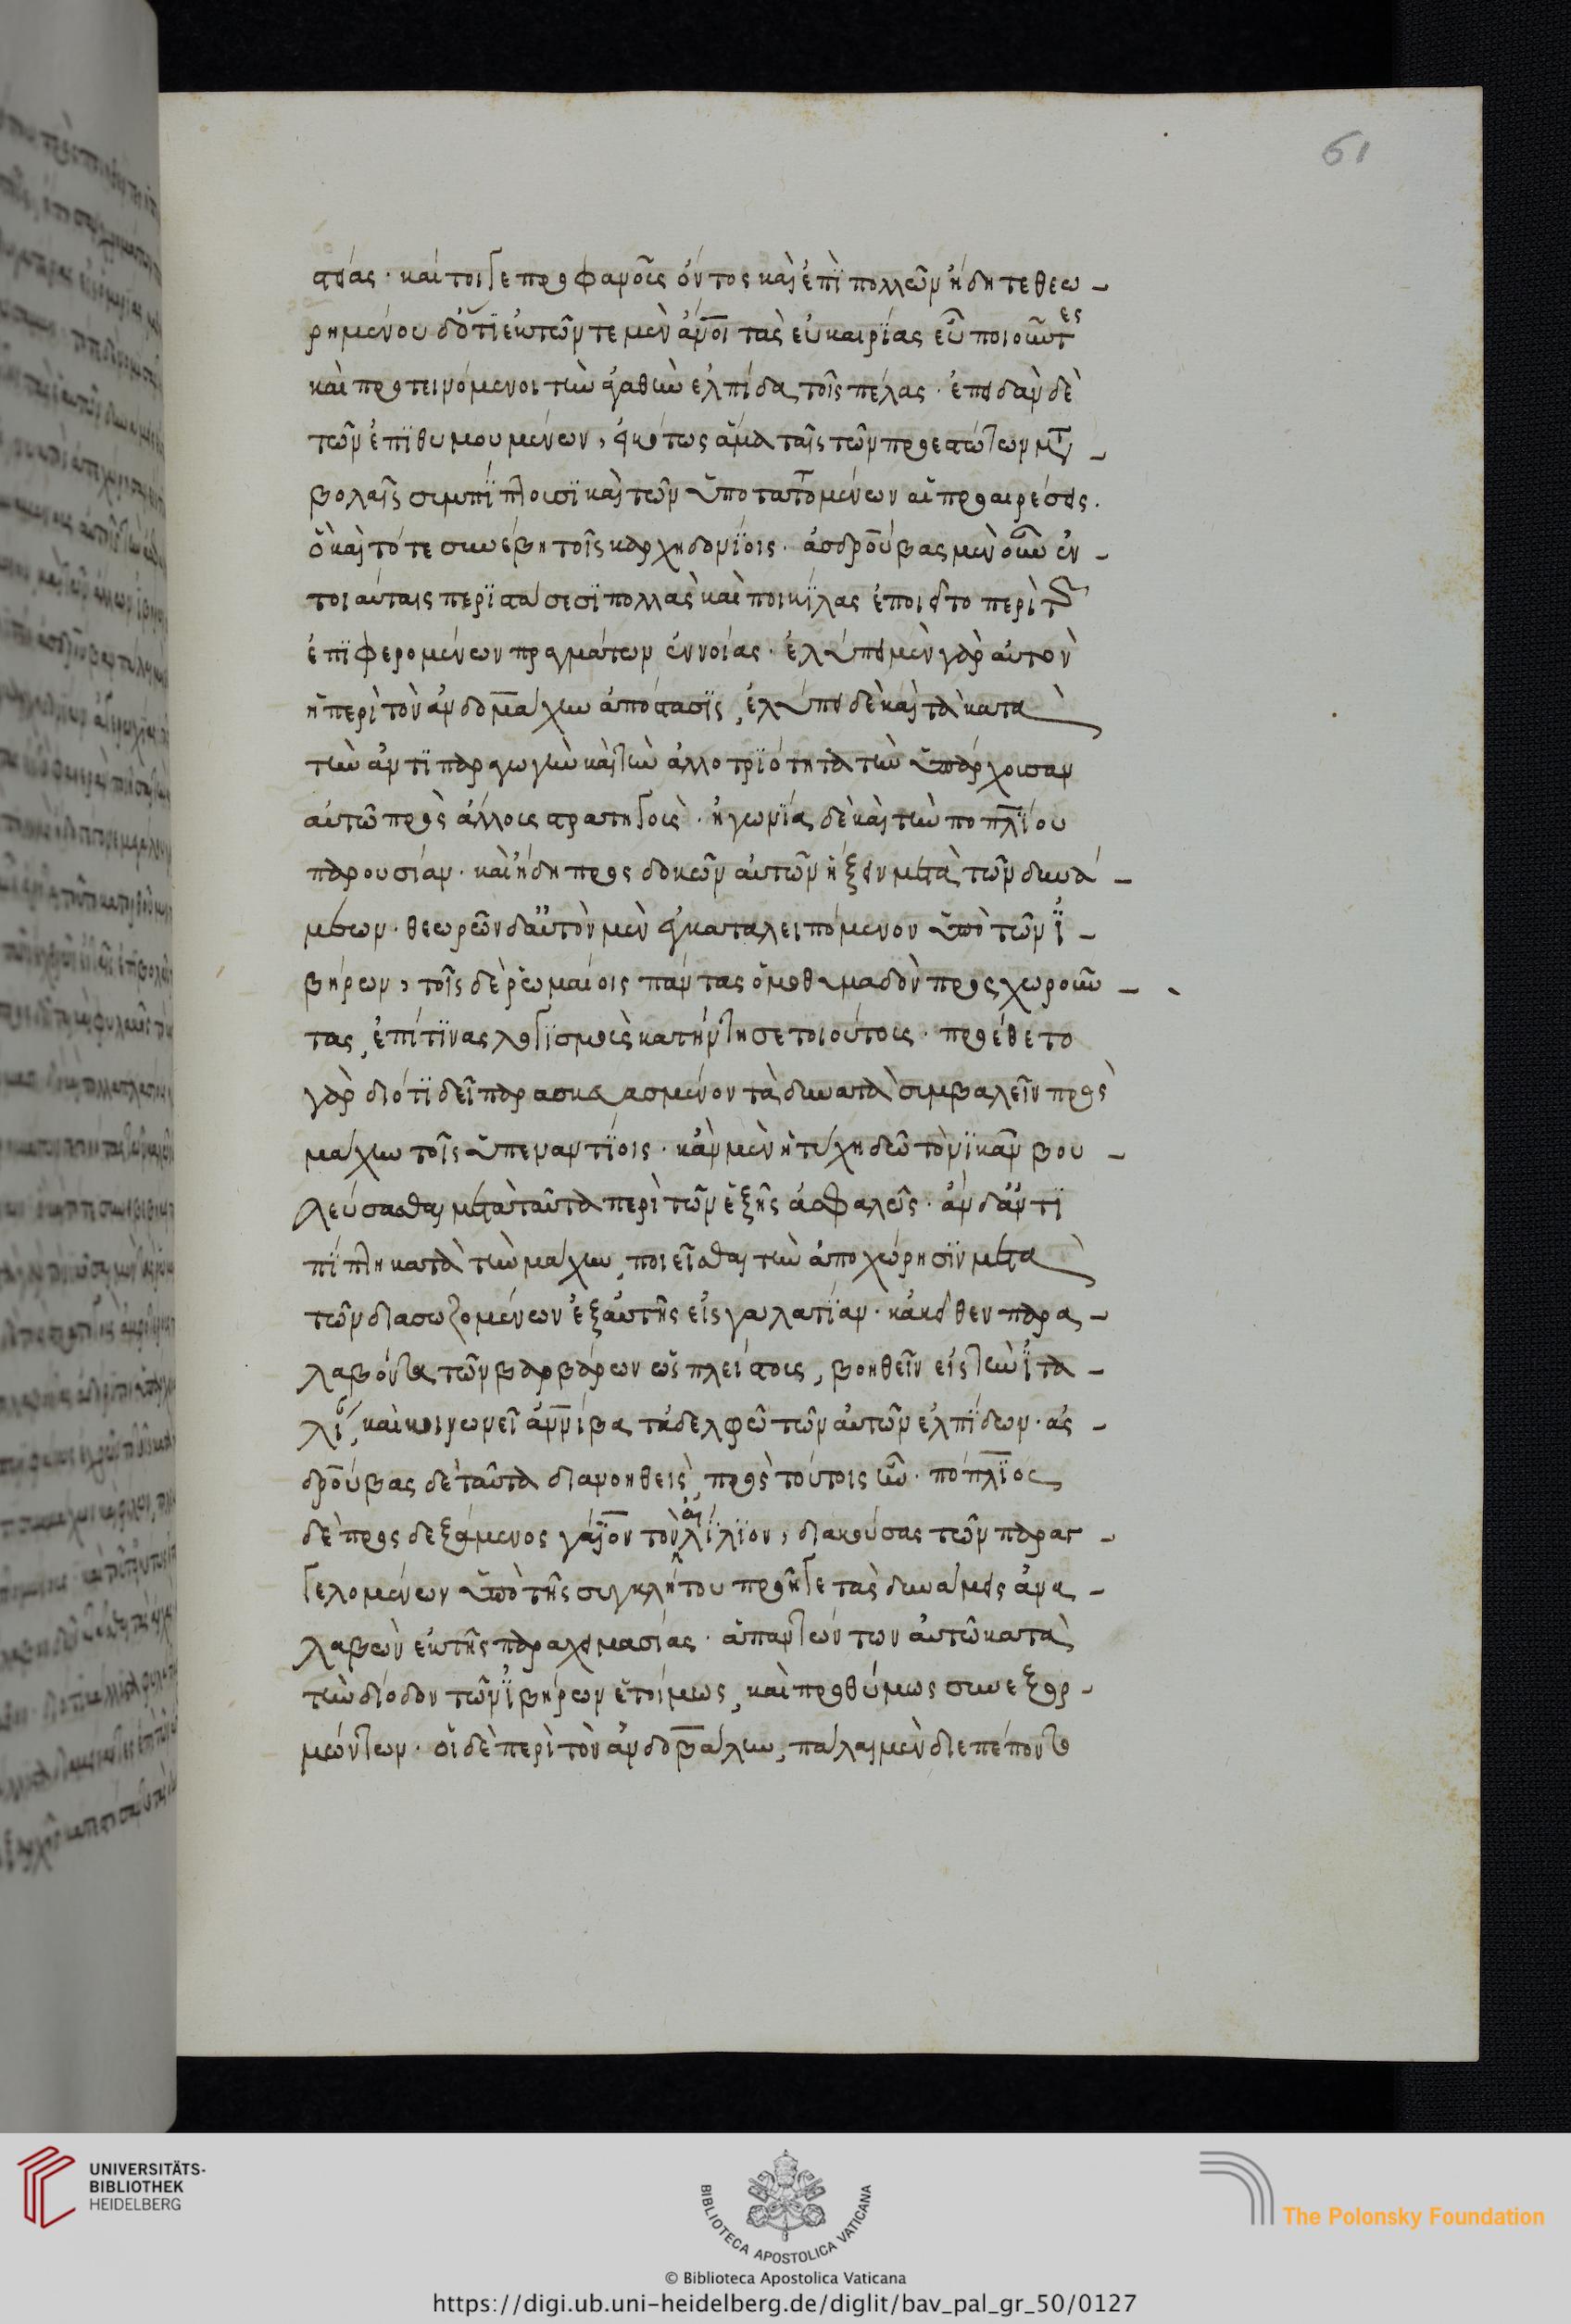 στείας· καίτοιγε προφανοῦς ὄντος καὶ ἐπὶ πολλῶν ἤδη τεθεω-
ρημένου διότι ἐκτῶντε μὲν ἄνοι τὰς εὐκαιρίας εὖ ποιοῦντες
καὶ προτεινόμενοι τὴν ἀγαθὴν ἐλπίδα τοῖς πέλας· ἐπειδὰν δὲ
τῶν ἐπϊθυμουμένων, εἰκότως ἅμα ταῖς τῶν προεστώτων μετα-
βολαῖς συμπίπτουσϊ καὶ τῶν ὑποταττομένων αἱ προαιρέσεις.
ὃ καὶ τότε συνέβη τοῖς καρχηδονίοις· ἀσδρούβας μὲν οὖν ἐν-
τοιαύταις περϊστάσεσϊ πολλὰς καὶ ποικίλας ἐποιεῖτο περὶ τῶν
ἐπϊφερομένων πραγμάτων ἐννοίας· ἐλύπει μὲν γὰρ αὐτὸν
ἡ περὶ τὸν ἀνδομάχην ἀπόστασϊς, ἐλύπει δὲ καὶ τὰ κατὰ
τὴν ἀντϊπαραγωγὴν καὶ τὴν ἀλλοτρϊότητα τὴν ὑπάρχουσαν
αὐτῶ πρὸς ἄλλους στρατηγούς· ἠγωνία δὲ καὶ τὴν ποπλΐου
παρουσίαν· καὶ ἤδη προσδοκῶν αὐτῶν ἥξειν μετὰ τῶν δυνά-
μεων· θεωρῶν δ' αὑτὸν μὲν ἐγκαταλειπόμενον ὑπὸ τῶν ϊ-
βήρων, τοῖς δὲ ῥωμαίοις πάντας ὁμοθυμαδὸν προσχωροῦν-
τας, ἐπί τϊνας λογϊσμοὺς κατήντησε τοιούτους· προέθετο
γὰρ διότϊ δεῖ παρασκευασμένον τὰ δυνατὰ συμβαλεῖν πρὸς
μάχην τοῖς ὑπεναντΐοις· κἂν μὲν ἡ τύχη δῶ τὸ νϊκᾶν βου-
λεύσασθαι μετὰ ταῦτα περὶ τῶν ἑξῆς ἀσφαλῶς· ἂν δ' ἀντϊ
πίπτη κατὰ τὴν μάχην, ποιεῖσθαι τὴν ἀποχώρησϊν μετὰ
τῶν διασωζομένων ἐξ αὐτῆς εἰς γαλατΐαν· κἀκεῖθεν παρα-
λαβόντα τῶν βαρβάρων ὡς πλείστους, βοηθεῖν εἰς τὴν ϊτα-
λίαν, καὶ κοινωνεῖ ἀννίβα τἀδελφῶ τῶν αὐτῶν ἐλπΐδων· ἀσ-
δρούβας δὲ ταῦτα διανοηθεὶς, πρὸς τούτοις ὢν· πόπλϊος
δὲ προσδεξάμενος γάϊον τὸν λαίλϊον, διακούσας τῶν παραγ-
γελομένων ὑπὸ τῆς συγκλήτου προῆγε τὰς δυνάμεις ἀνα-
λαβὼν ἐκ τῆς παραχειμασίας· ἀπαντώντων αὐτῶ κατὰ
τὴν δίοδον τῶν ϊβήρων ἑτοίμως, καὶ προθύμως συνεξορ-
μώντων· οἱ δὲ περὶ τὸν ἀνδοβάλην, πάλαι μὲν διεπέποντο
61
UNIVERSITÄTS-
BIBLIOTHEK
HEIDELBERG
BIBLIOTECA APOSTOLICA VATICANA
The Polonsky Foundation
© Biblioteca Apostolica Vaticana
https://digi.ub.uni-heidelberg.de/diglit/bav_pal_gr_50/0127